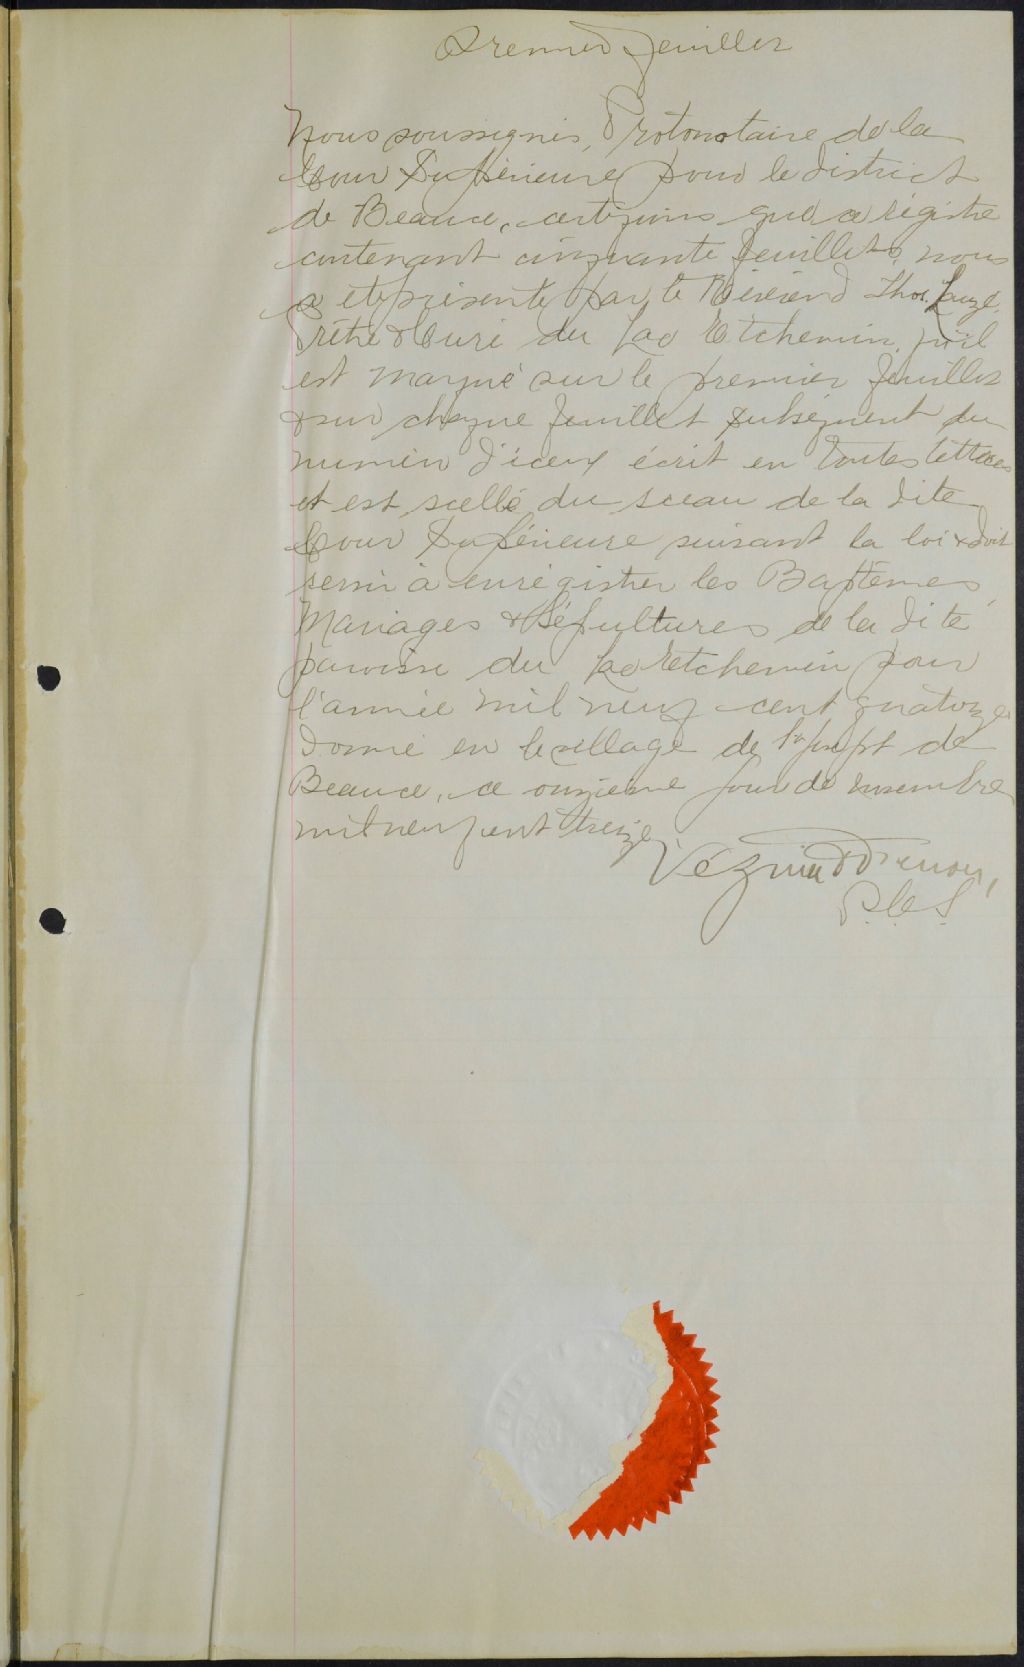 Premier feuillet
Nous soussignés, Protonotaire de la
Cour Supérieure pour le district
de Beauce, certifions que ce régistre
contenant cinquante feuillets, nous
a été présenté par le Révérend Thos. Lauzé,
Prêtre & Curé du Lac Etchemin, qu'il
est marqué sur le premier feuillet
& sur chaque feuillet subséquent du
numéro d'iceux écrit en toutes lettres
et est scellé du sceau de la dite
Cour Supérieure suivant la loi & doit
servir à enrégistrer les Baptêmes,
Mariages & Sépultures de la dite
paroisse du Lac Etchemin pour
l'année mil neuf cent quatorze
Donné en le village de St Joseph de
Beauce, ce onzième jour de novembre
mil neuf cent treize
Vézina &
P.C.S.